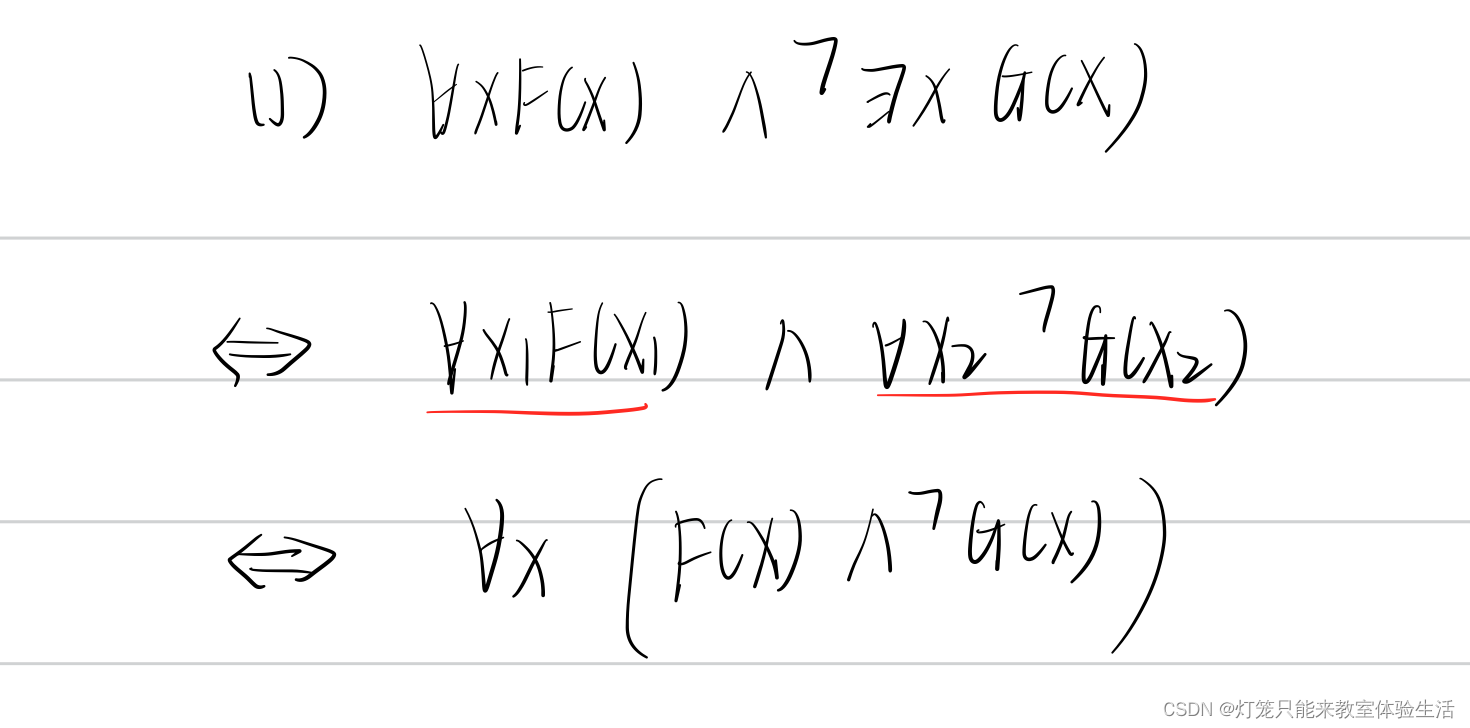 (1) ∀xF(x) ∧ ¬∃x G(x)
⇔ ∀x₁F(x₁) ∧ ∀x₂ ¬G(x₂)
⇔ ∀x (F(x) ∧ ¬G(x))
CSDN @灯笼只能来教室体验生活